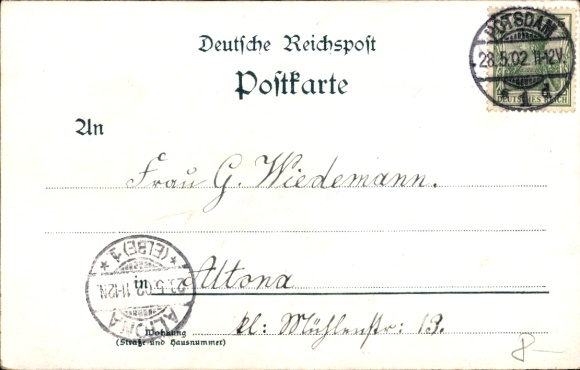 Deutsche Reichspost
Postkarte
POTSDAM
28.5.02 11-12V.
* 1 d.
DEUTSCHES REICH
An
Frau G. Wiedemann.
in Altona
kl: Mühlenstr: 13.
Wohnung
(Straße und Hausnummer)
ALTONA
29.5.02 11-12N.
* (ELBE) 1 *